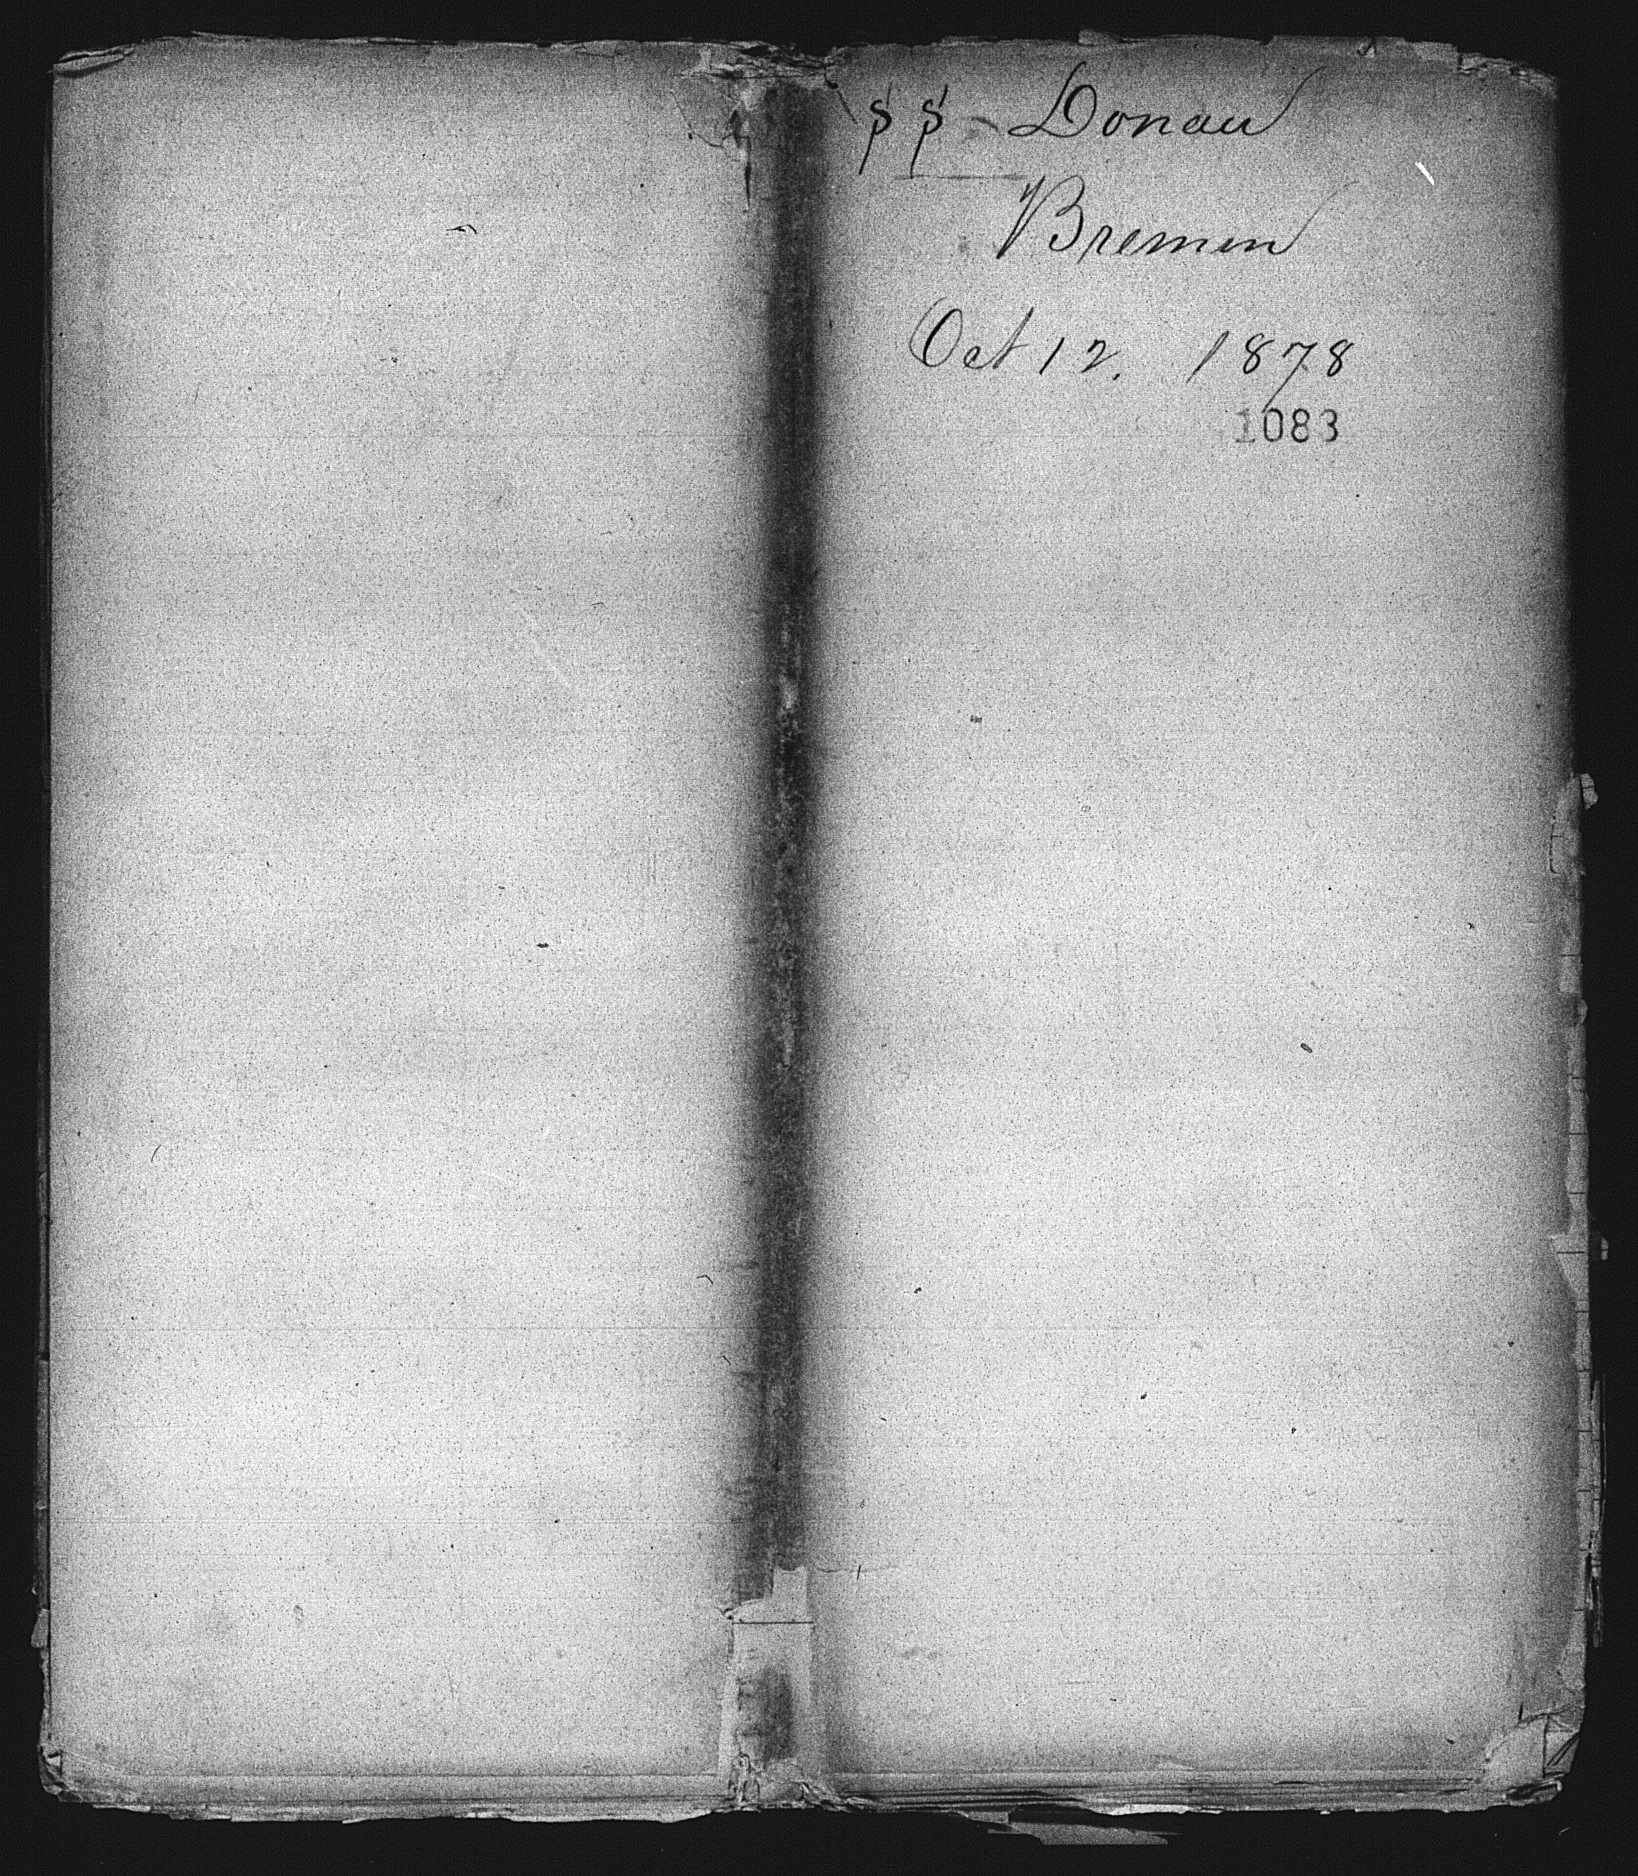 SS Donau
Bremen
Oct 12. 1878
1083